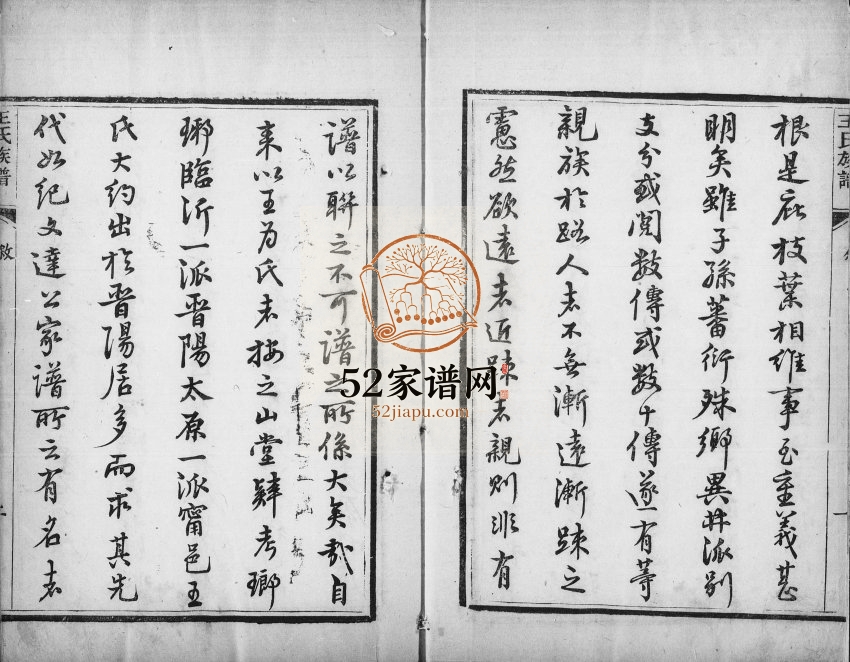 王氏族譜
根是庇枝葉相維事至重義甚
明矣雖子孫蕃衍殊鄉異井派别
支分或閱数傳或数十傳遂有等
親族於路人者不無漸遠漸踈之
慮然欲遠者近踈者親則非有
譜以聯之不可譜之所係大矣哉自
来以王为氏者按之山堂肆考瑯
琊臨沂一派晋陽太原一派甯邑王
氏大約出於晋陽居多而求其先
代如纪文達公家譜所云有名者
王氏族譜
敘
一
52家谱网
52jiapu.com